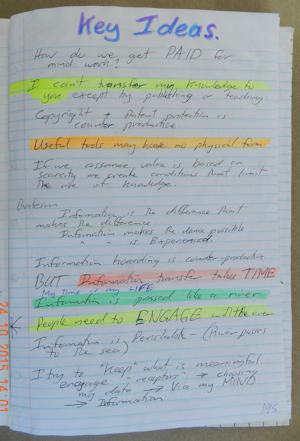 Key Ideas.
How do we get PAID for
mind work?
I can't transfer my knowledge to
you except by publishing or teaching
Copyright + Patent protection is
counter productive
Useful tools may have no physical form
If we assume value is based on
scarcity we create conditions that limit
the use of knowledge.
Bateson
Information is the difference that
makes the difference
Information makes the dance possible
" " is Experienced.
Information hoarding is counter-productive
BUT Information transfer takes TIME
My Time my LIFE
Information is passed like a river
People need to ENGAGE with the river
Information is Perishable - (River passes
to the sea)
I try to "Keep what is meaningful
engage "receptors" → choosing
my data → Via my MIND
→ Information
195
24.10.2015 14:01